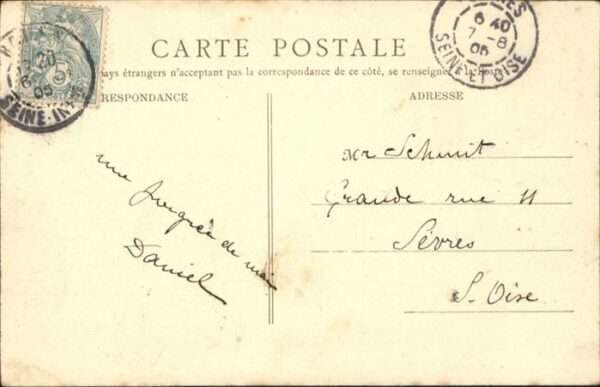 CARTE POSTALE
pays étrangers n'acceptant pas la correspondance de ce côté, se renseigner à la Poste
RESPONDANCE
ADRESSE
une poignée de main
Daniel
Mr Schmit
Grande rue 11
Sèvres
S. Oise
5
SEINE-IN
05
6 40
7-8
05
SEINE-ET-OISE